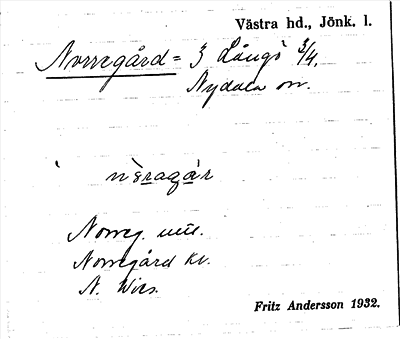 Västra hd., Jönk. l.
Norregård = 3 Långö 3/4.
Nydala sn.
Norreg.
Norregård kv.
N. Wies.
Fritz Andersson 1932.